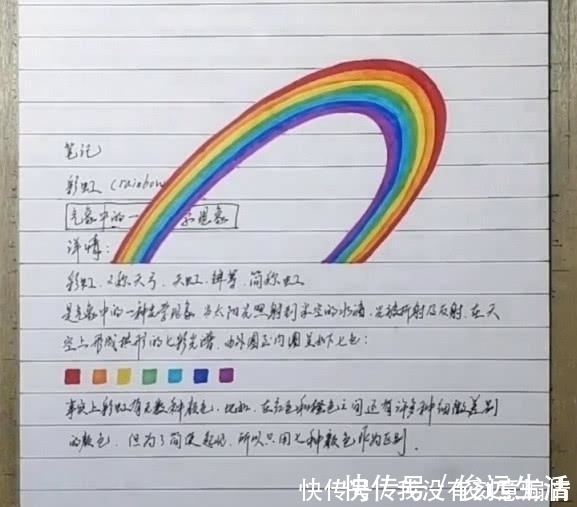 笔记
彩虹 (rainbow
气象中的一 学现象
详情:
彩虹、又称天弓、天虹、绛等,简称虹
是气象中的一种光学现象,当太阳光照射到半空的水滴,光被折射及反射,在天
空上形成拱形的七彩光谱,由外圈至内圈呈如下七色:
事实上彩虹有无数种颜色,比如,在红色和橙色之间还有许多种细微差别
的颜色,但为了简便起见,所以只用七种颜色作为区别.
快传号 / 俊远生活
快传号